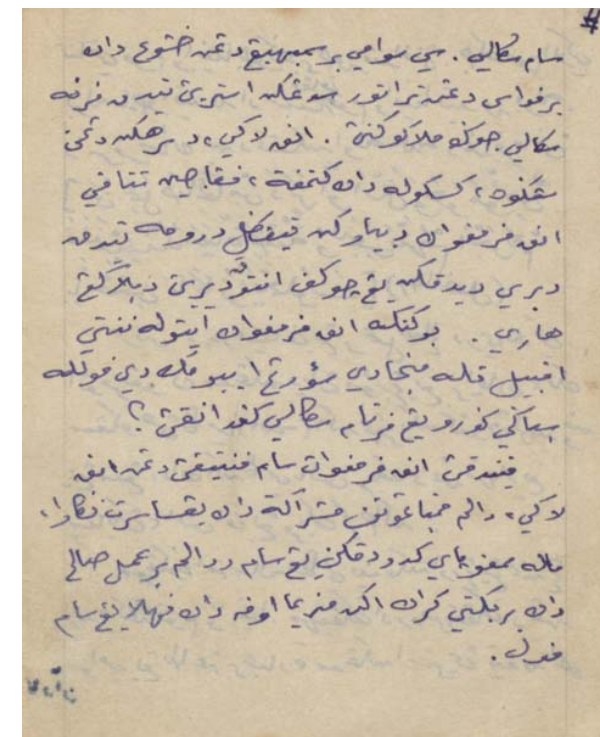 #
سام سكالي. سي سوامي برسمبهيڠ دڠن خشوع دان
برفواس دڠن تراتور سدڠكن استرين تيدق فرنه
سكالي جوك ملاكوكنڽ. انق لاكي٢ دسرهكن دڠن
سڠكوه٢ كسكوله دان كتمفت٢ فڠاجين تتافي
انق فرمفوان دبياركن تيڠكل درومه تيدق
دبري ديديقكن يڠ چوكف انتوق ديرين دبلاكڠ
هاري. بوكنكه انق فرمفوان ايتوله ننتي
افبيل تله منجادي سؤرڠ ايبو مك دي فوله
سباكي كورو يڠ فرتام سكالي كفد انقڽ؟
فيندقڽ انق فرمفوان سام فنتيڠڽ دڠن انق
لاكي٢ دالم مشراكة دان بڠسا سرت نكارا،
ماله ممفوڽاي كدودقكن يڠ سام ددالم برعمل صالح
دان بربكتي كران اكن منريما اوفه دان فهلا يڠ سام